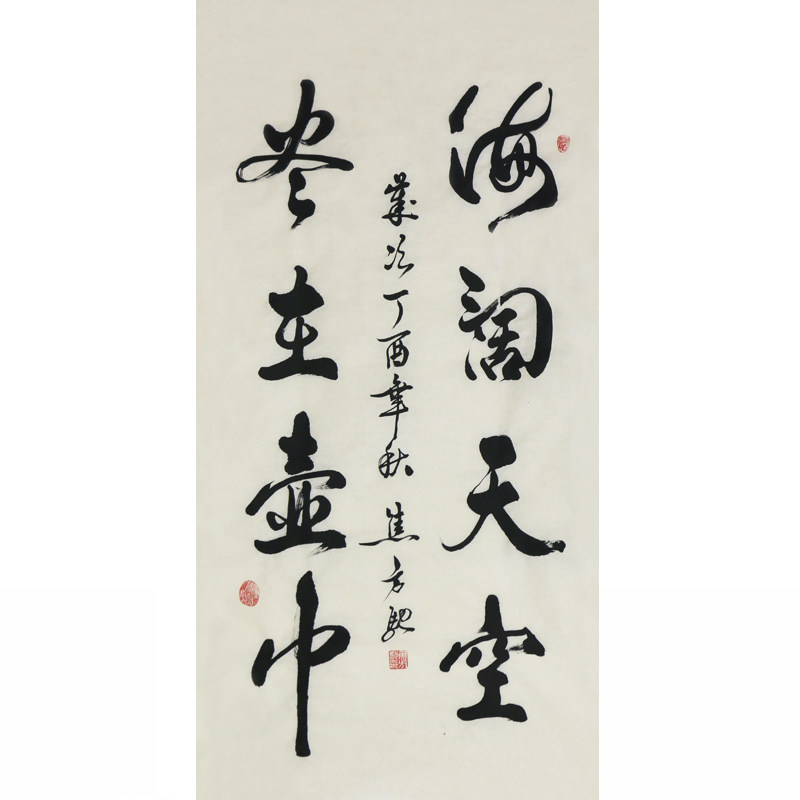 海阔天空
尽在壶中
歲次丁酉年秋 焦方